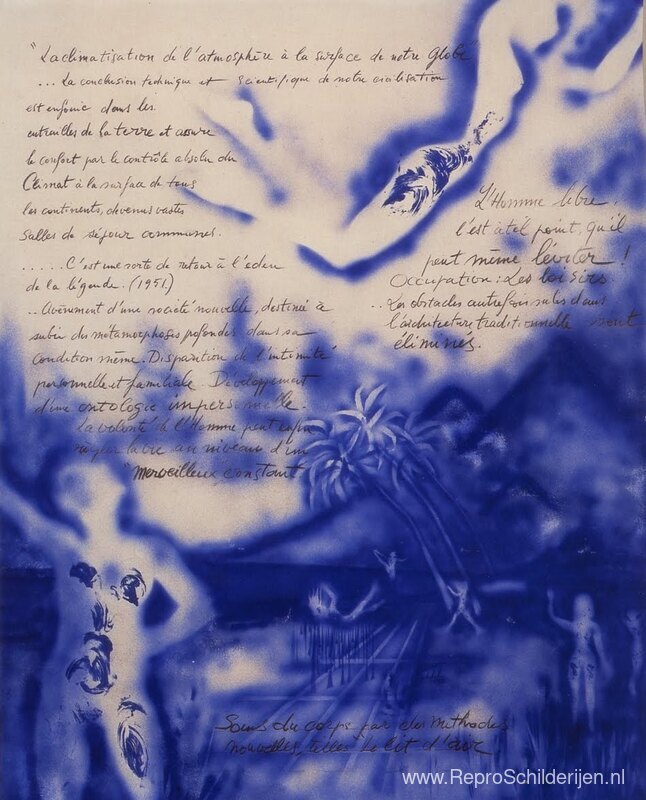 "La climatisation de l'atmosphère à la surface de notre Globe
... La conclusion technique et scientifique de notre civilisation
est enfouie dans les
entrailles de la terre et assure
le confort par le contrôle absolu du
Climat à la surface de tous
les continents, devenus vastes
salles de séjour communes.
..... C'est une sorte de retour à l'eden
de la légende. (1951)
.. Avènement d'une société nouvelle, destinée à
subir des métamorphoses profondes dans sa
condition même. Disparition de l'intimité
personnelle et familiale. Développement
d'une ontologie impersonnelle.
La volonté de l'Homme peut enfin
la vie au niveau d'un
"Merveilleux constant
L'Homme libre,
l'est à tel point, qu'il
peut même léviter !
Occupation : Les loisirs
.. Les obstacles autrefois subis dans
l'architecture traditionnelle sont
éliminés.
Soins du corps par des méthodes
nouvelles, telles le lit d'air
www.ReproSchilderijen.nl